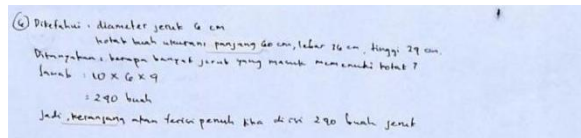 ④ Diketahui : diameter jeruk 6 cm
kotak buah ukuran : panjang 60 cm, lebar 36 cm, tinggi 29 cm.
Ditanyakan : berapa banyak jeruk yang masuk memenuhi kotak ?
Jawab : 10 x 6 x 4
: 240 buah
Jadi, keranjang akan terisi penuh jika diisi 240 buah jeruk